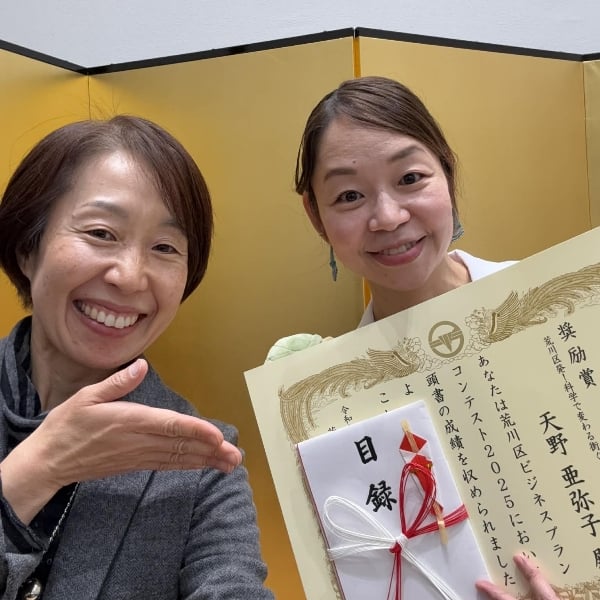 奨励賞
荒川区発!科学で変わる街
天野 亜弥子 殿
あなたは荒川区ビジネスプラン
コンテスト2025におい
頭書の成績を収められました
よ
こ
令和
目録